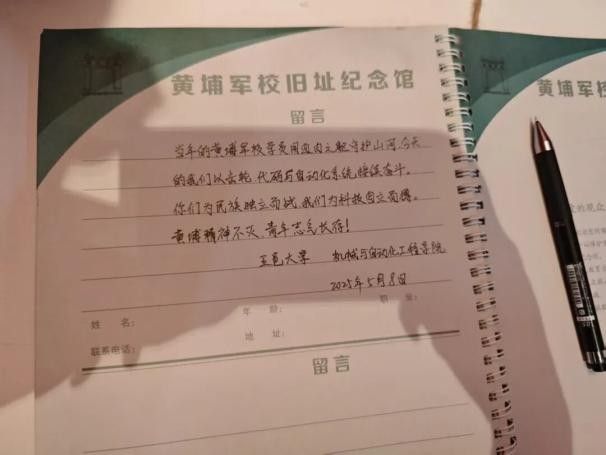 黄埔军校旧址纪念馆
留言
当年的黄埔军校学员用血肉之躯守护山河,今天
的我们以齿轮、代码与自动化系统接续奋斗。
你们为民族独立而战,我们为科技自立而搏。
黄埔精神不灭,青年志气长存!
五邑大学 机械与自动化工程学院
2025年5月8日
姓 名: 年 龄: 职 业:
联系电话: 地 址:
留言
黄埔军校